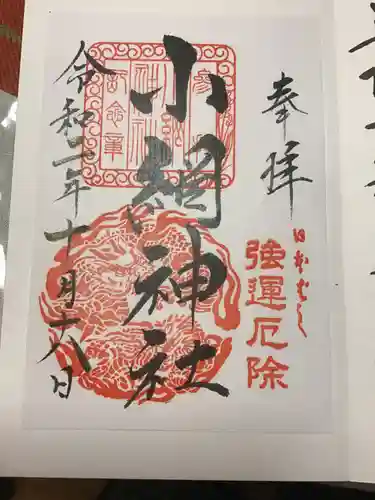 奉拝
日本ばし
強運厄除
小網神社
令和二年十月十八日